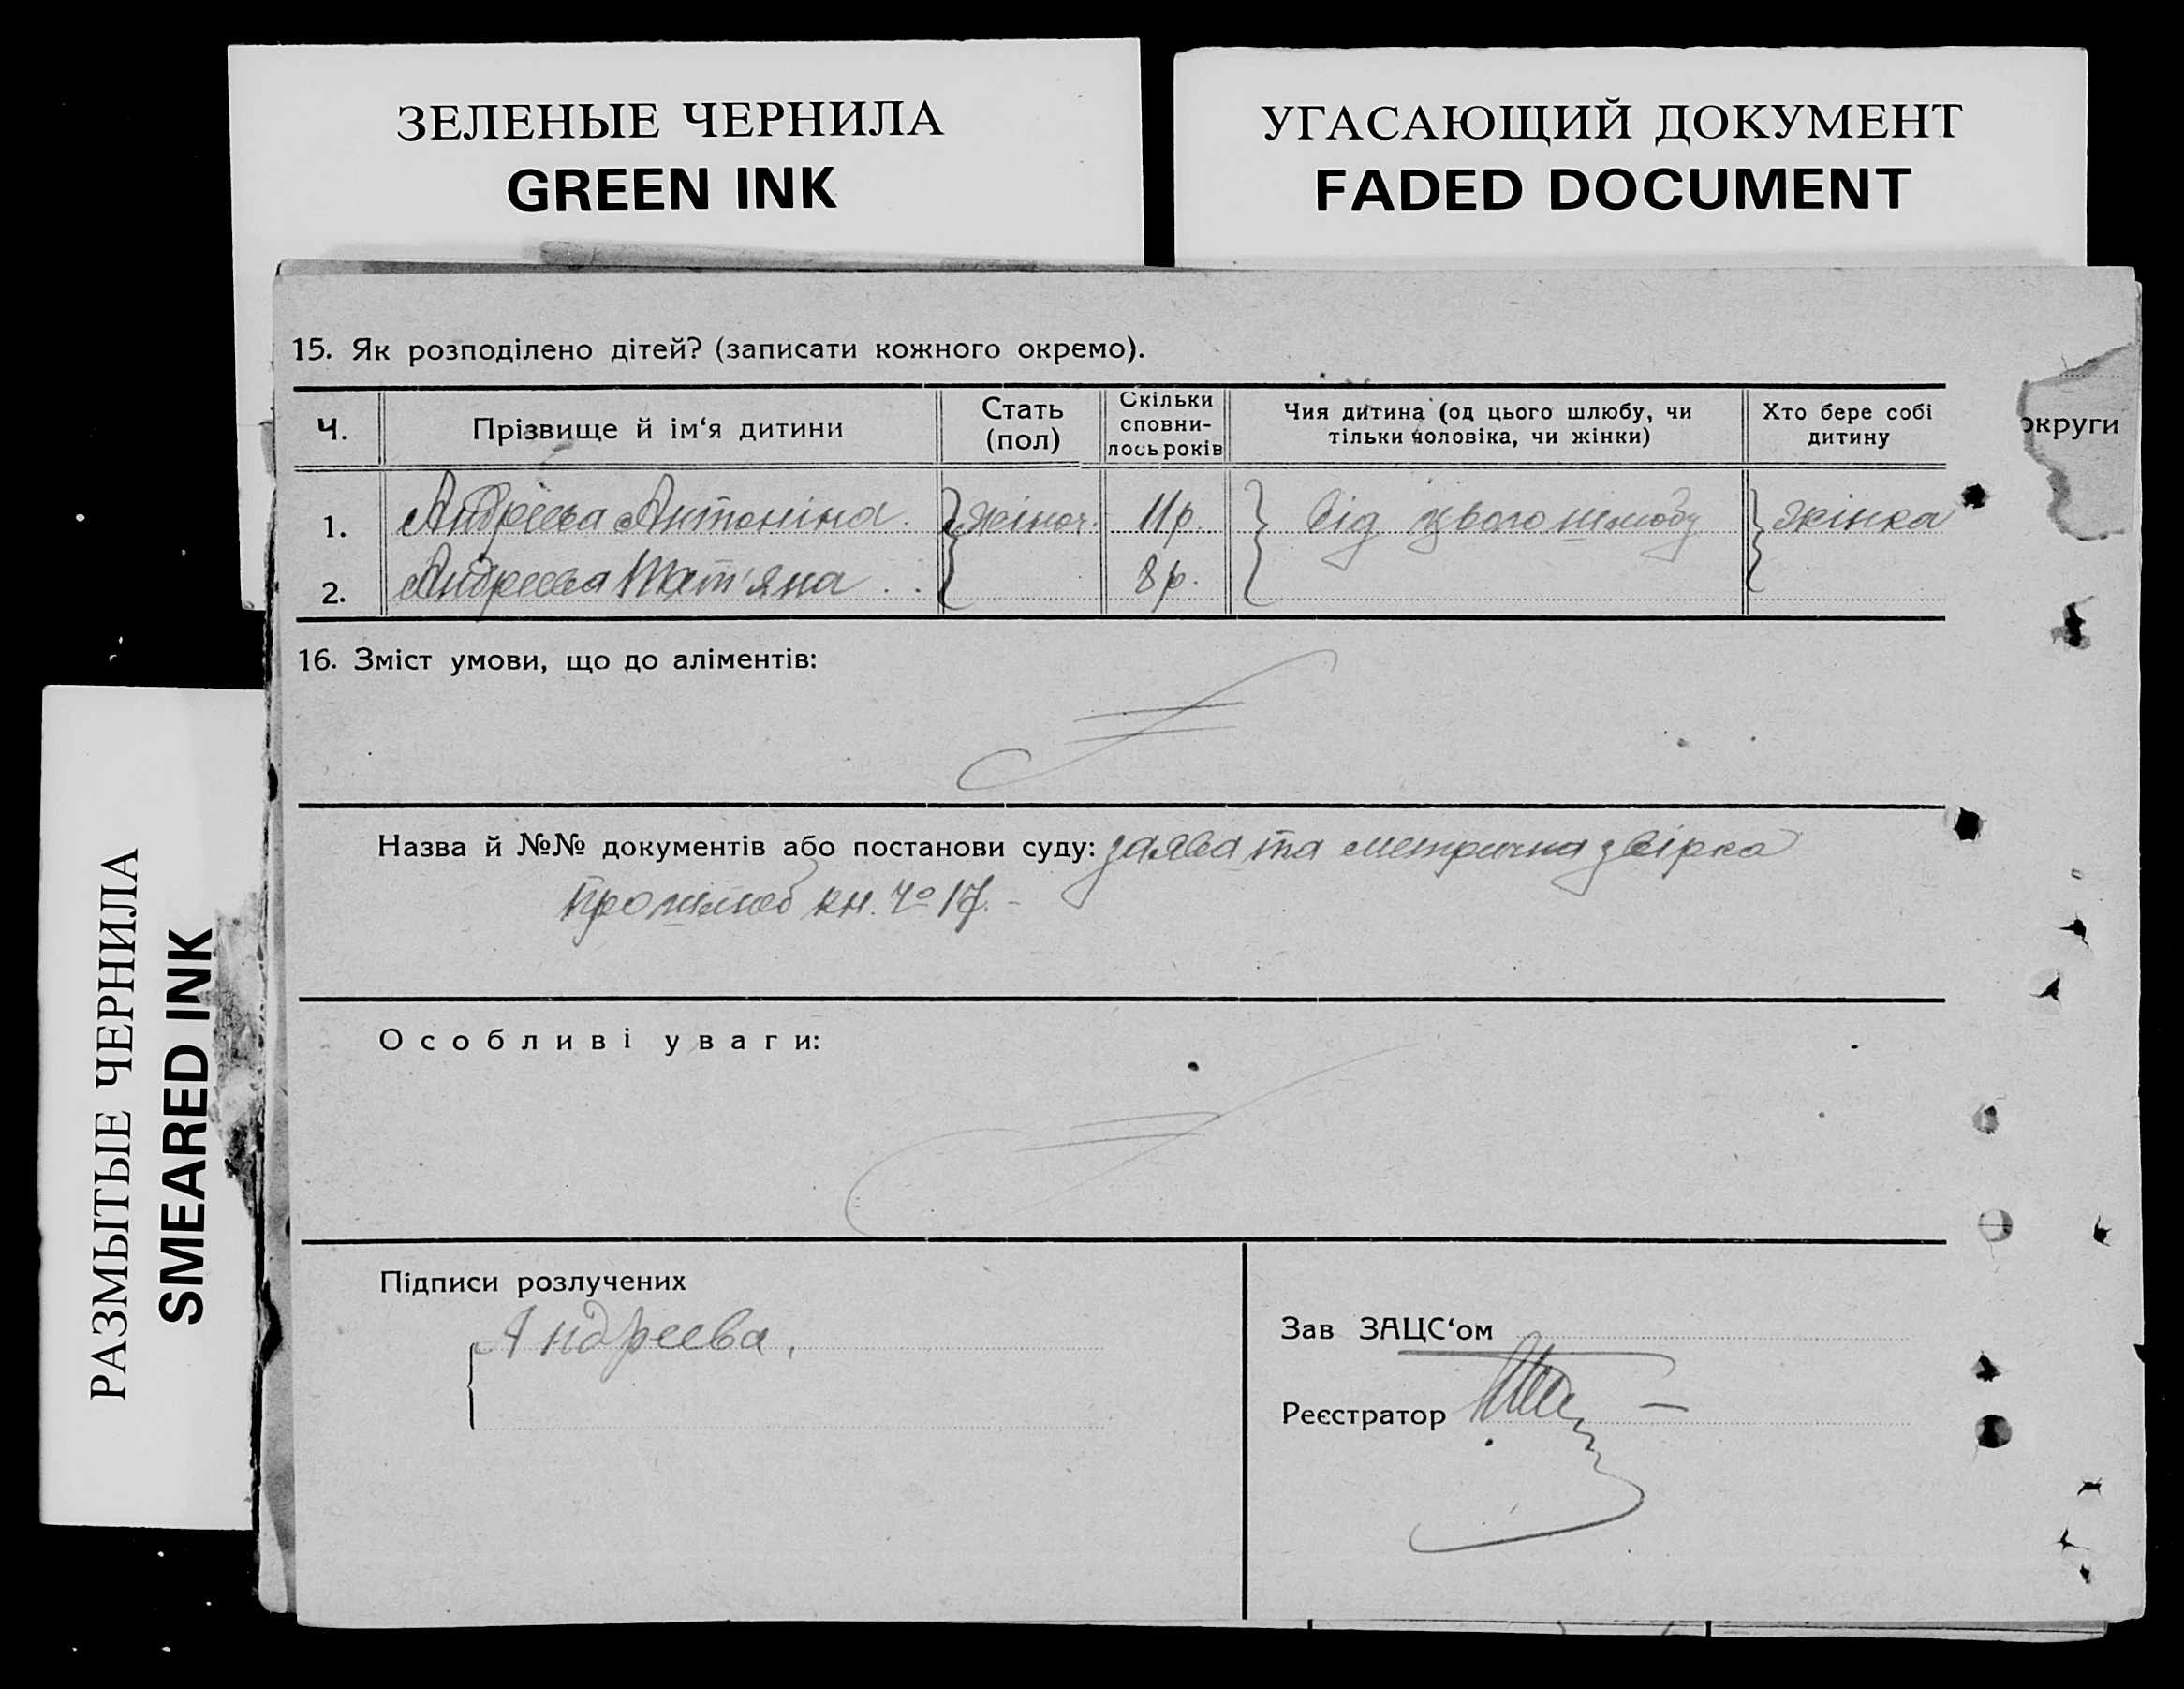 ЗЕЛЕНЫЕ ЧЕРНИЛА
GREEN INK
УГАСАЮЩИЙ ДОКУМЕНТ
FADED DOCUMENT
РАЗМЫТЫЕ ЧЕРНИЛА
SMEARED INK
15. Як розподілено дітей? (записати кожного окремо).
Ч.
Прізвище й ім‘я дитини
Стать
(пол)
Скільки
сповни-
лось років
Чия дитина (од цього шлюбу, чи
тільки чоловіка, чи жінки)
Хто бере собі
дитину
округи
1. Андрієва Антоніна. жіноч. 11 р. від цього шлюбу жінка
2. Андреева Тат'яна 8 р.
16. Зміст умови, що до аліментів:
Назва й №№ документів або постанови суду: заява та метрична звірка
про шлюб кн. Ч° 17. -
Особливі уваги:
Підписи розлучених
Андреева.
Зав ЗАЦС‘ом
Реєстратор